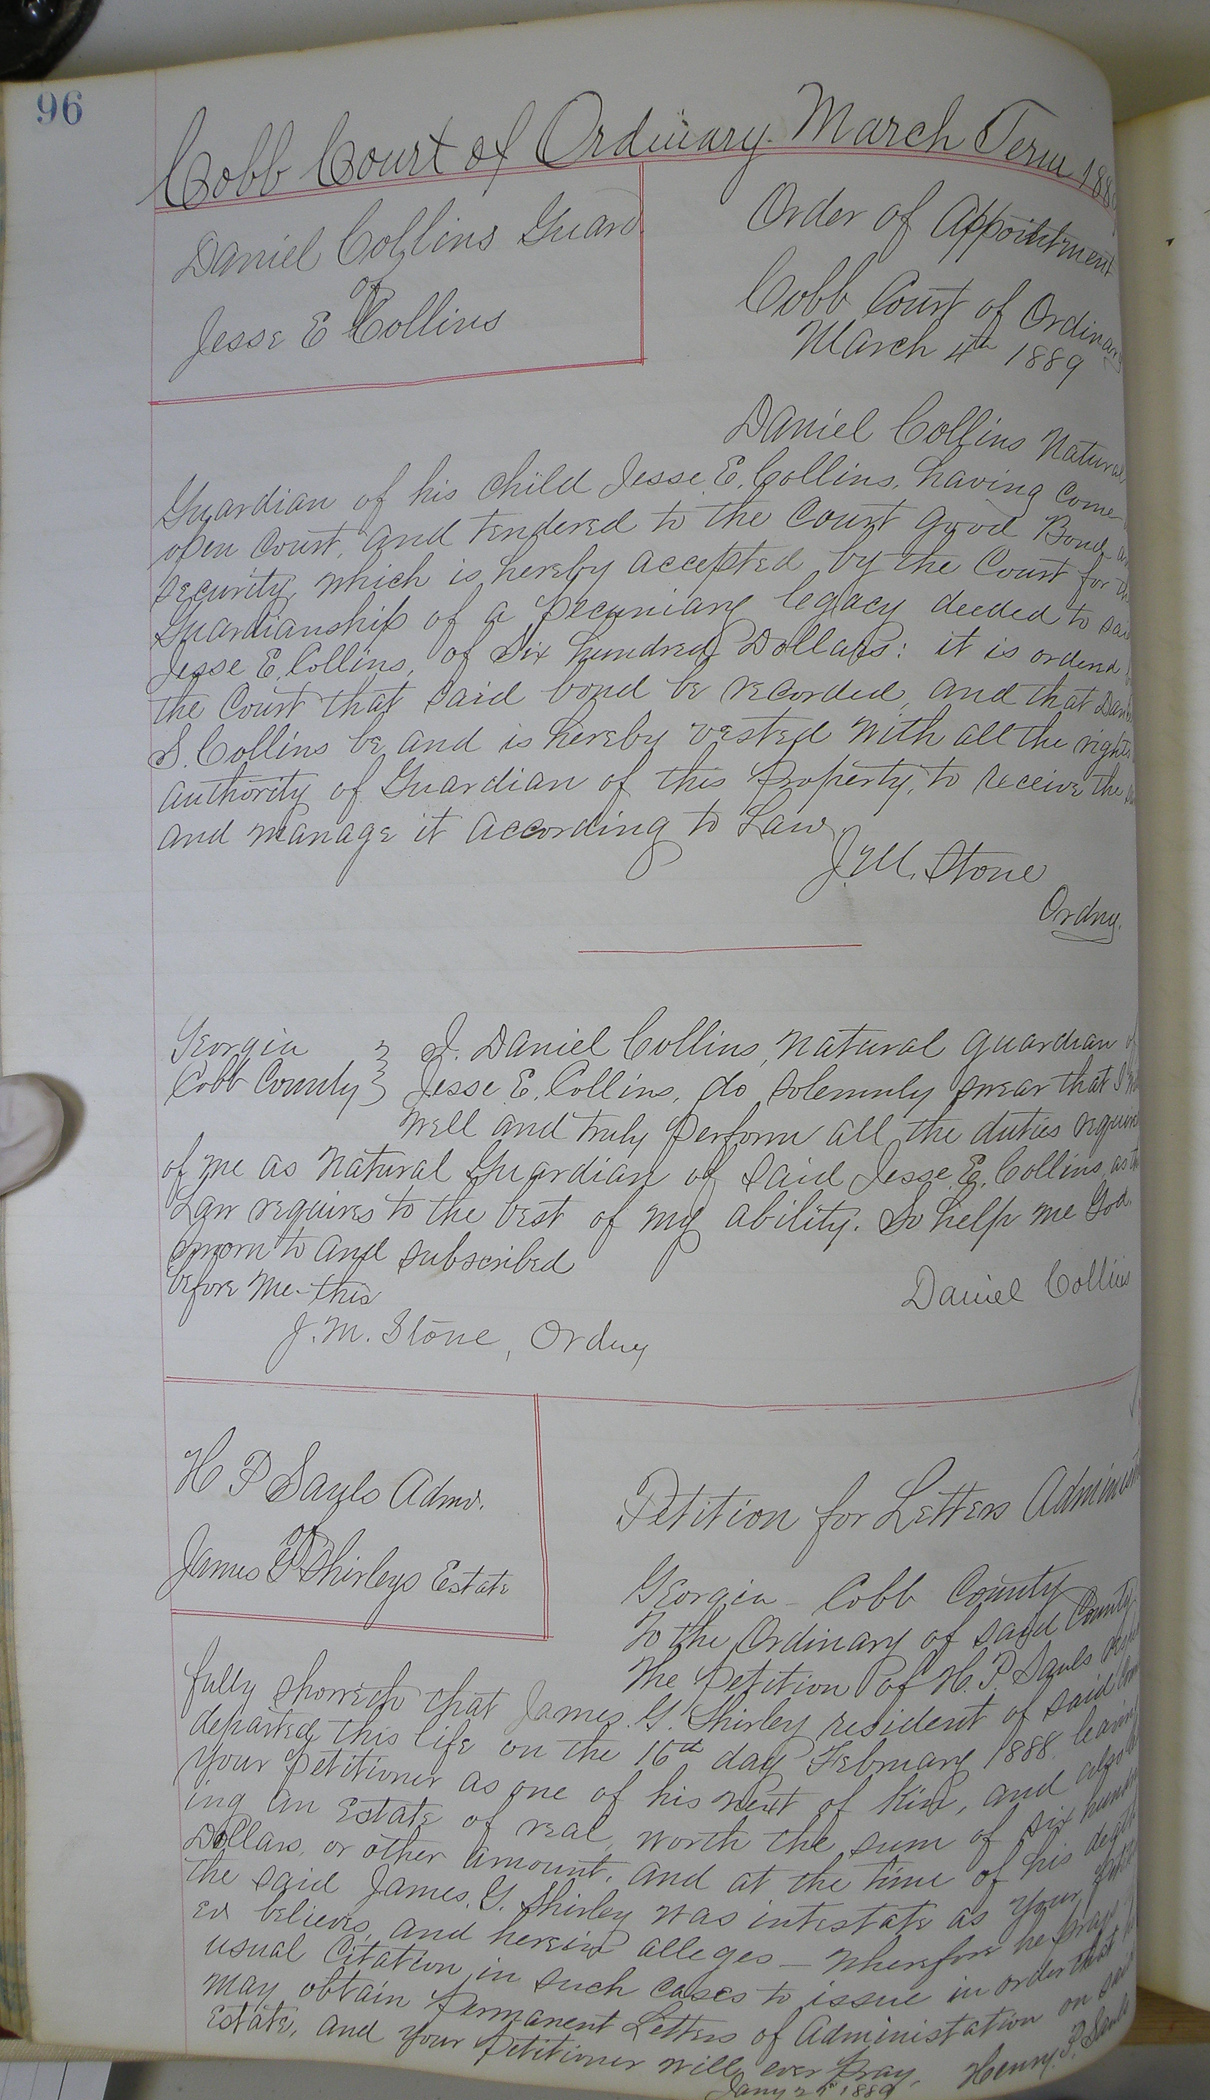 96
Cobb Court of Ordinary. March Term 188
Daniel Collins Guard
of
Jesse E Collins
Order of Appointment
Cobb Court of Ordinary
March 4th 1889
Daniel Collins Natural
Guardian of his child Jesse E. Collins, having come
open court, and tendered to the Court good Bond
security, which is hereby accepted by the Court for
Guardianship of a pecuniary legacy deeded to said
Jesse E. Collins, of Six hundred Dollars: it is orderd
the Court that said bond be recorded, and that
S. Collins be, and is hereby vested with all the rights
authority of Guardian of this property, to receive the
and manage it according to Law.
J. M. Stone
Ordny.
Georgia
Cobb County
I. Daniel Collins, natural guardian of
Jesse E. Collins, do solemnly swear that I
well and truly perform all the duties
of me as natural Guardian of said Jesse E. Collins, as
Law requires to the best of my ability. So help me God.
Sworn to and subscribed
before me this
Daniel Collins
J. M. Stone, Ordny
H P Sauls Admr.
of
James G Shirleys Estate
Petition for Letters
Georgia - Cobb County
To the Ordinary of said County
The petition of H. P. Sauls
fully showeth that James. G. Shirley resident of said
departed this life on the 16th day February 1888. leaving
your petitioner as one of his next of kin, and also
ing an Estate of real, worth the sum of six
Dollars, or other amount, and at the time of his death
the said James, G. Shirley was intestate as your
er believes, and herein alleges — Wherefore he prays
usual Citation in such cases to issue in order that
may obtain permanent Letters of Administation on said
Estate, and your petitioner will ever pray.
Henry. P. Sauls
Jany 25 1889